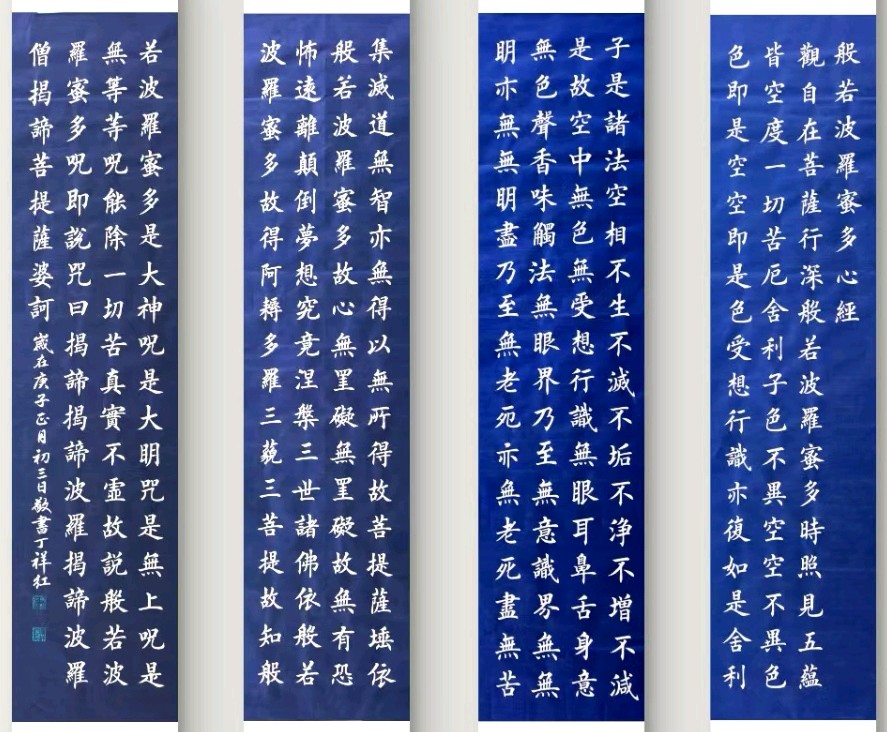 般若波羅蜜多心經
觀自在菩薩行深般若波羅蜜多時照見五蘊
皆空度一切苦厄舍利子色不異空空不異色
色即是空空即是色受想行識亦復如是舍利
子是諸法空相不生不滅不垢不浄不增不減
是故空中無色無受想行識無眼耳鼻舌身意
無色聲香味觸法無眼界乃至無意識界無無
明亦無無明盡乃至無老死亦無老死盡無苦
集滅道無智亦無得以無所得故菩提薩埵依
般若波羅蜜多故心無罣礙無罣礙故無有恐
怖遠離顛倒夢想究竟涅槃三世諸佛依般若
波羅蜜多故得阿耨多羅三藐三菩提故知般
若波羅蜜多是大神呪是大明咒是無上呪是
無等等呪能除一切苦真實不虛故説般若波
羅蜜多呪即說咒曰揭諦揭諦波羅揭諦波羅
僧揭諦菩提薩婆訶 歲在庚子正月初三日敬書丁祥紅